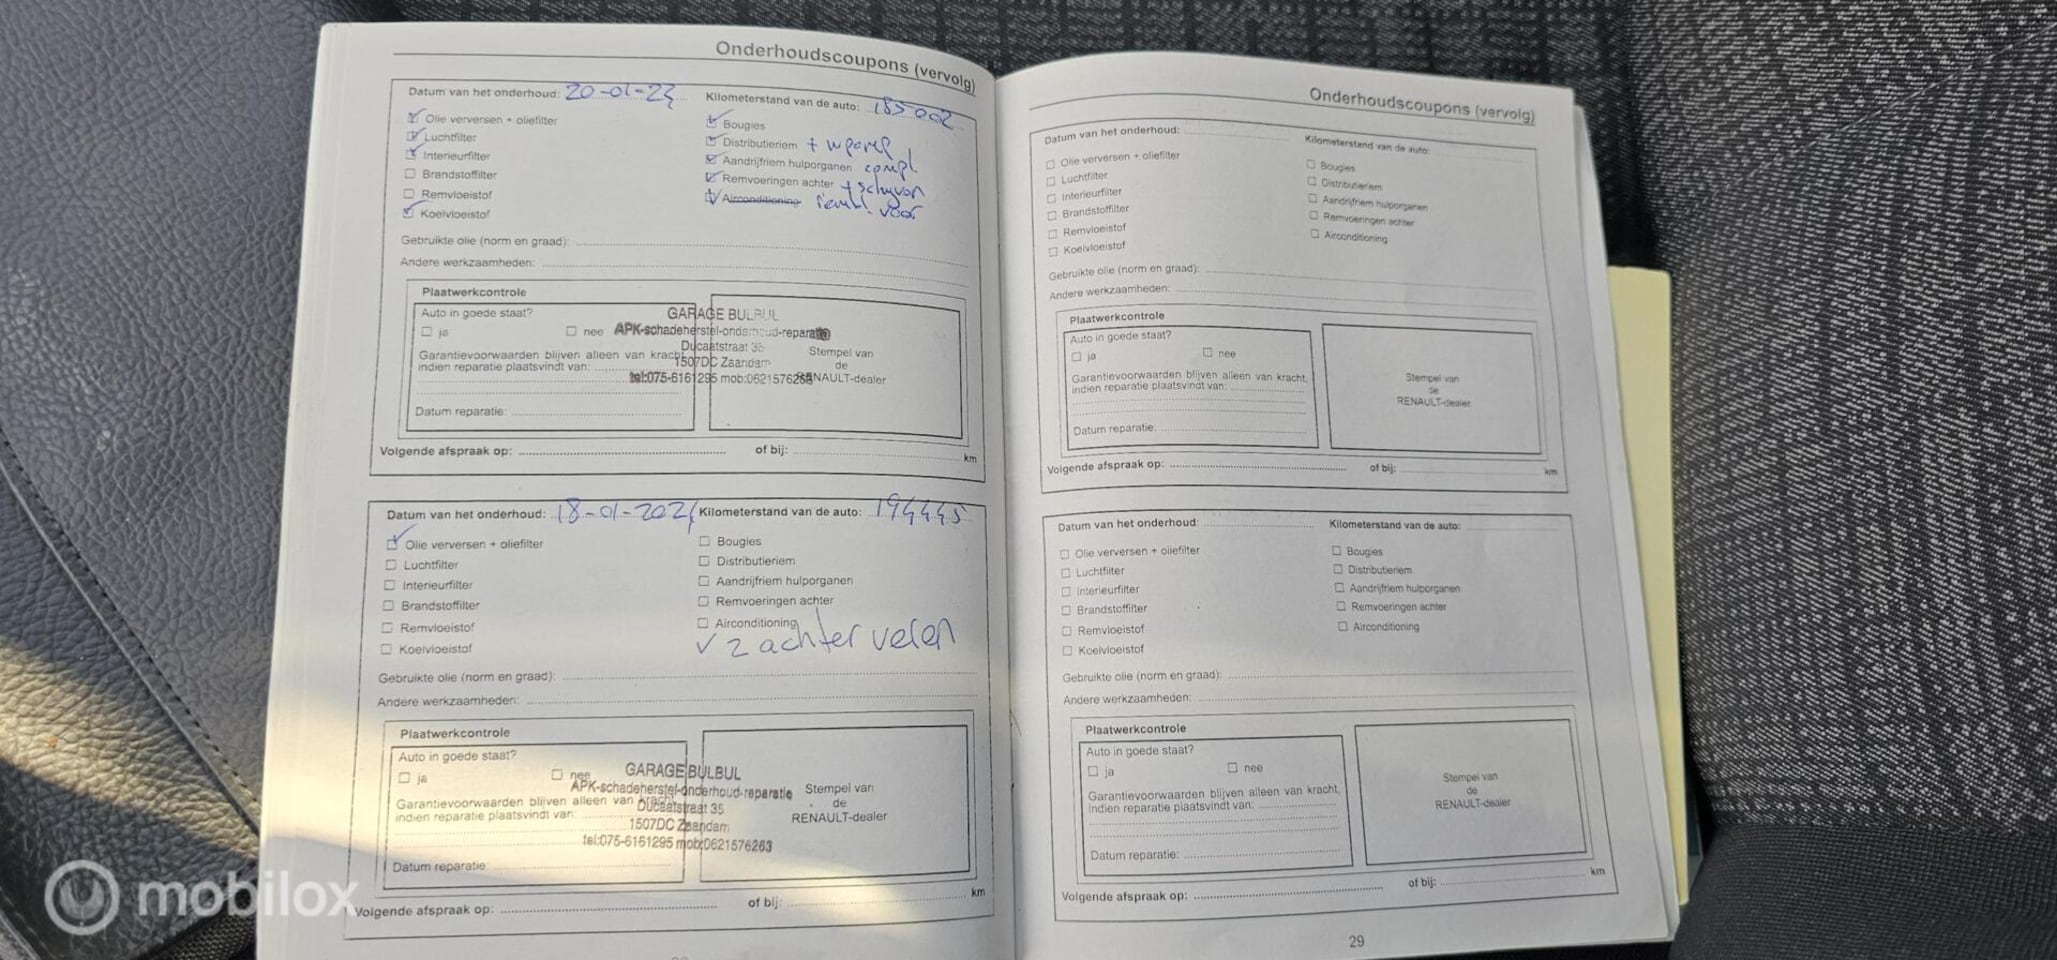 Onderhoudscoupons (vervolg)
Datum van het onderhoud: 20-01-23 Kilometerstand van de auto: 185002
Olie verversen + oliefilter
Luchtfilter
Interieurfilter
Brandstoffilter
Remvloeistof
Koelvloeistof
Bougies
Distributieriem +
Aandrijfriem hulporganen compl.
Remvoeringen achter + schyven
Airconditioning voor
Gebruikte olie (norm en graad):
Andere werkzaamheden:
Plaatwerkcontrole
Auto in goede staat?
ja nee
Garantievoorwaarden blijven alleen van kracht
indien reparatie plaatsvindt van:
Datum reparatie:
GARAGE BULBUL
APK-schadeherstel-onderhoud-reparatie
Ducaatstraat 35
1507DC Zaandam
tel:075-6161295 mob:0621576263
Stempel van
de
RENAULT-dealer
Volgende afspraak op: of bij: km
Datum van het onderhoud: 18-01-2024 Kilometerstand van de auto: 194445
Olie verversen + oliefilter
Luchtfilter
Interieurfilter
Brandstoffilter
Remvloeistof
Koelvloeistof
Bougies
Distributieriem
Aandrijfriem hulporganen
Remvoeringen achter
Airconditioning
2 achter veren
Gebruikte olie (norm en graad):
Andere werkzaamheden:
Plaatwerkcontrole
Auto in goede staat?
ja nee
Garantievoorwaarden blijven alleen van kracht
indien reparatie plaatsvindt van:
Datum reparatie:
GARAGE BULBUL
APK-schadeherstel-onderhoud-reparatie
Ducaatstraat 35
1507DC Zaandam
tel:075-6161295 mob:0621576263
Stempel van
de
RENAULT-dealer
Volgende afspraak op: of bij: km
Onderhoudscoupons (vervolg)
Datum van het onderhoud: Kilometerstand van de auto:
Olie verversen + oliefilter
Luchtfilter
Interieurfilter
Brandstoffilter
Remvloeistof
Koelvloeistof
Bougies
Distributieriem
Aandrijfriem hulporganen
Remvoeringen achter
Airconditioning
Gebruikte olie (norm en graad):
Andere werkzaamheden:
Plaatwerkcontrole
Auto in goede staat?
ja nee
Garantievoorwaarden blijven alleen van kracht,
indien reparatie plaatsvindt van:
Datum reparatie:
Stempel van
de
RENAULT-dealer
Volgende afspraak op: of bij: km
Datum van het onderhoud: Kilometerstand van de auto:
Olie verversen + oliefilter
Luchtfilter
Interieurfilter
Brandstoffilter
Remvloeistof
Koelvloeistof
Bougies
Distributieriem
Aandrijfriem hulporganen
Remvoeringen achter
Airconditioning
Gebruikte olie (norm en graad):
Andere werkzaamheden:
Plaatwerkcontrole
Auto in goede staat?
ja nee
Garantievoorwaarden blijven alleen van kracht,
indien reparatie plaatsvindt van:
Datum reparatie:
Stempel van
de
RENAULT-dealer
Volgende afspraak op: of bij: km
29
mobilox